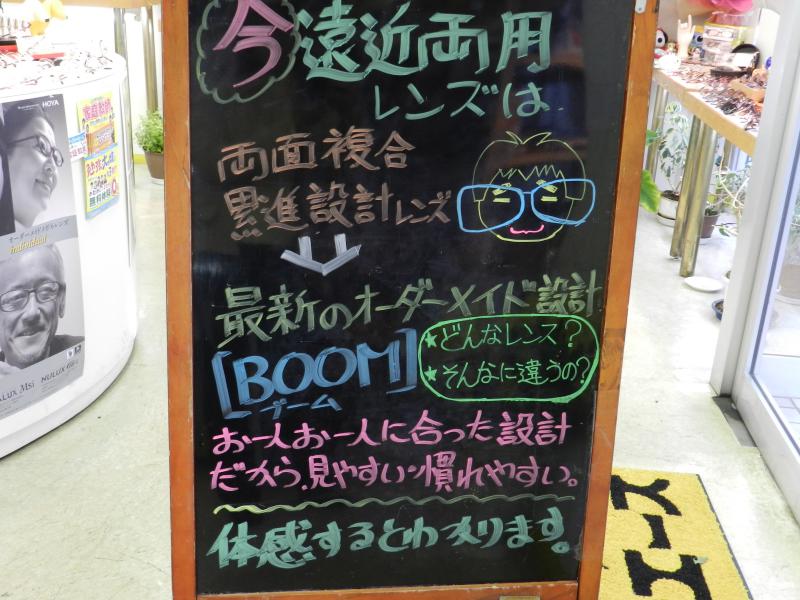 今 遠近両用
レンズは
両面複合
累進設計レンズ
最新のオーダーメイド設計
[BOOM]
ブーム
★どんなレンス?
★そんなに違うの?
お一人お一人に合った設計
だから、見やすい・慣れやすい。
体感するとわかります。
HOYA
オーダーメイドメガネレンズ
individual
エース